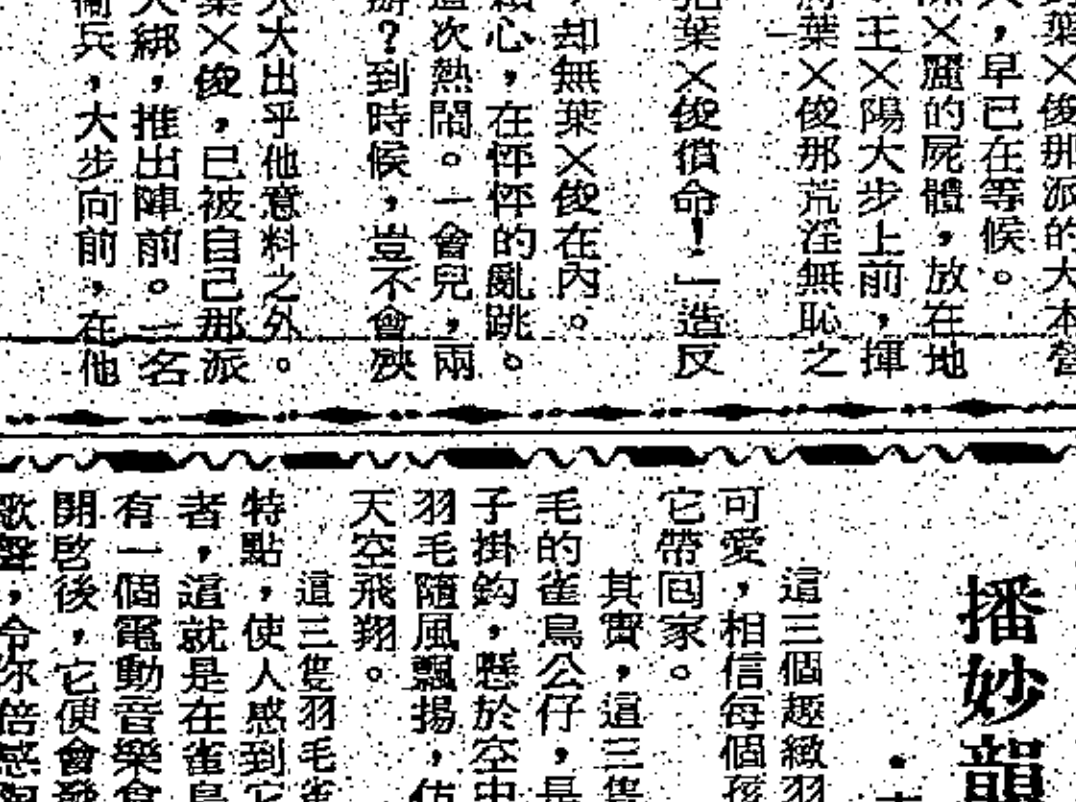 葉×俊那派的大本營
，早已在等候。
×麗的屍體，放在地
王×陽大步上前，揮
葉×俊那荒淫無恥之
葉×俊償命！」造反
却無葉×俊在內。
心，在怦怦的亂跳。
次熱鬧。一會兒，兩
？到時候，豈不會殃
大出乎他意料之外。
×俊，已被自己那派
綁，推出陣前。一名
兵，大步向前，在他
播妙韻
這三個趣緻羽
可愛，相信每個孩
它帶回家。
其實，這三隻
毛的雀鳥公仔，是
子掛鈎，懸於空中
羽毛隨風飄揚，仿
天空飛翔。
這三隻羽毛雀
特點，使人感到它
者，這就是在雀鳥
有一個電動音樂盒
開啓後，它便會發
歌聲，令你倍感